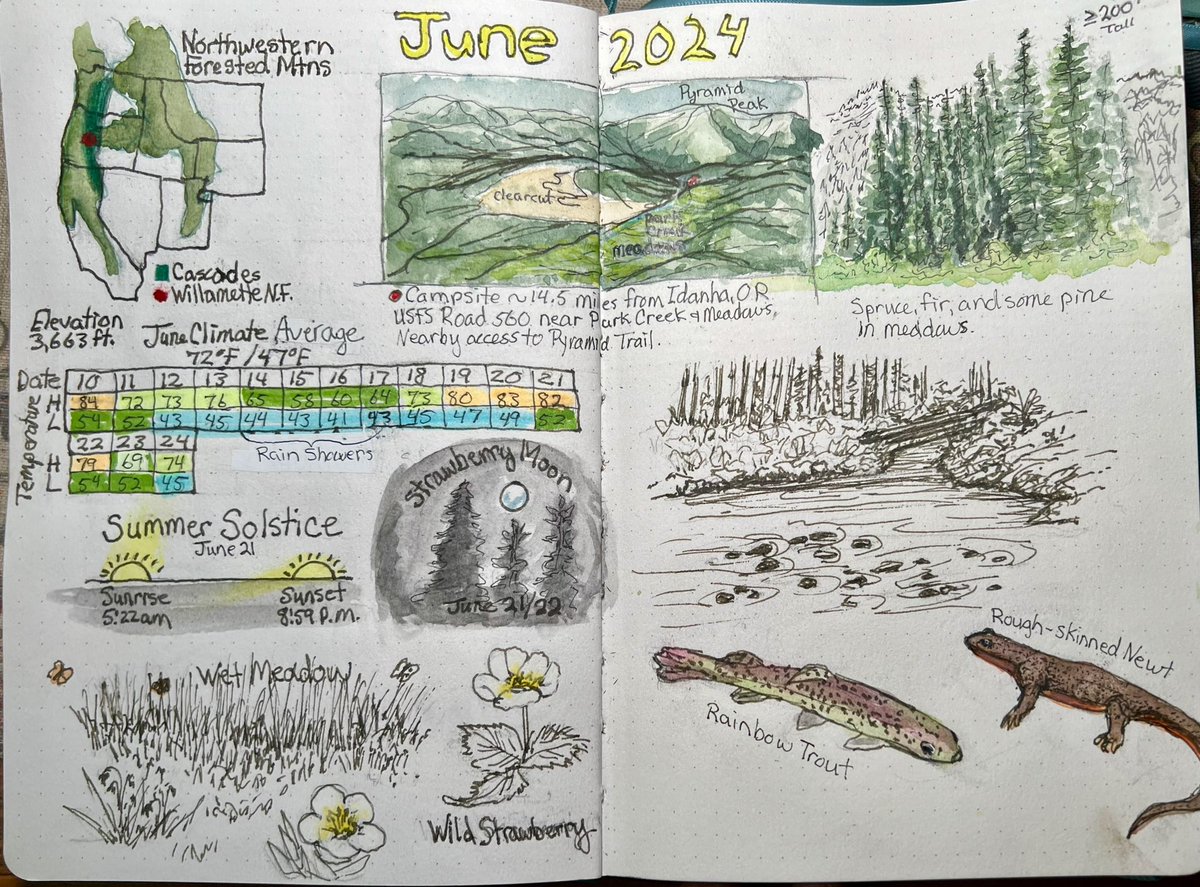 June 2024
≥200'
Tall
Northwestern
Forested Mtns
Cascades
Willamette N.F.
Pyramid
Peak
clearcut
Park
Creek
meadows
Campsite ~14.5 miles from Idanha, OR
USFS Road 560 near Park Creek & Meadows.
Nearby access to Pyramid Trail.
Spruce, fir, and some pine
in meadows.
Elevation
3,663 ft.
June Climate Average
72°F / 47°F
Date 10 11 12 13 14 15 16 17 18 19 20 21
Temperature
H 84 72 73 76 65 58 60 64 73 80 83 82
L 54 52 43 45 44 43 41 43 45 47 49 52
22 23 24
H 79 69 74
L 54 52 45
Rain Showers
Strawberry Moon
June 21/22
Summer Solstice
June 21
Sunrise
5:22am
Sunset
8:59 P.m.
Wet Meadow
Wild Strawberry
Rough-skinned Newt
Rainbow Trout